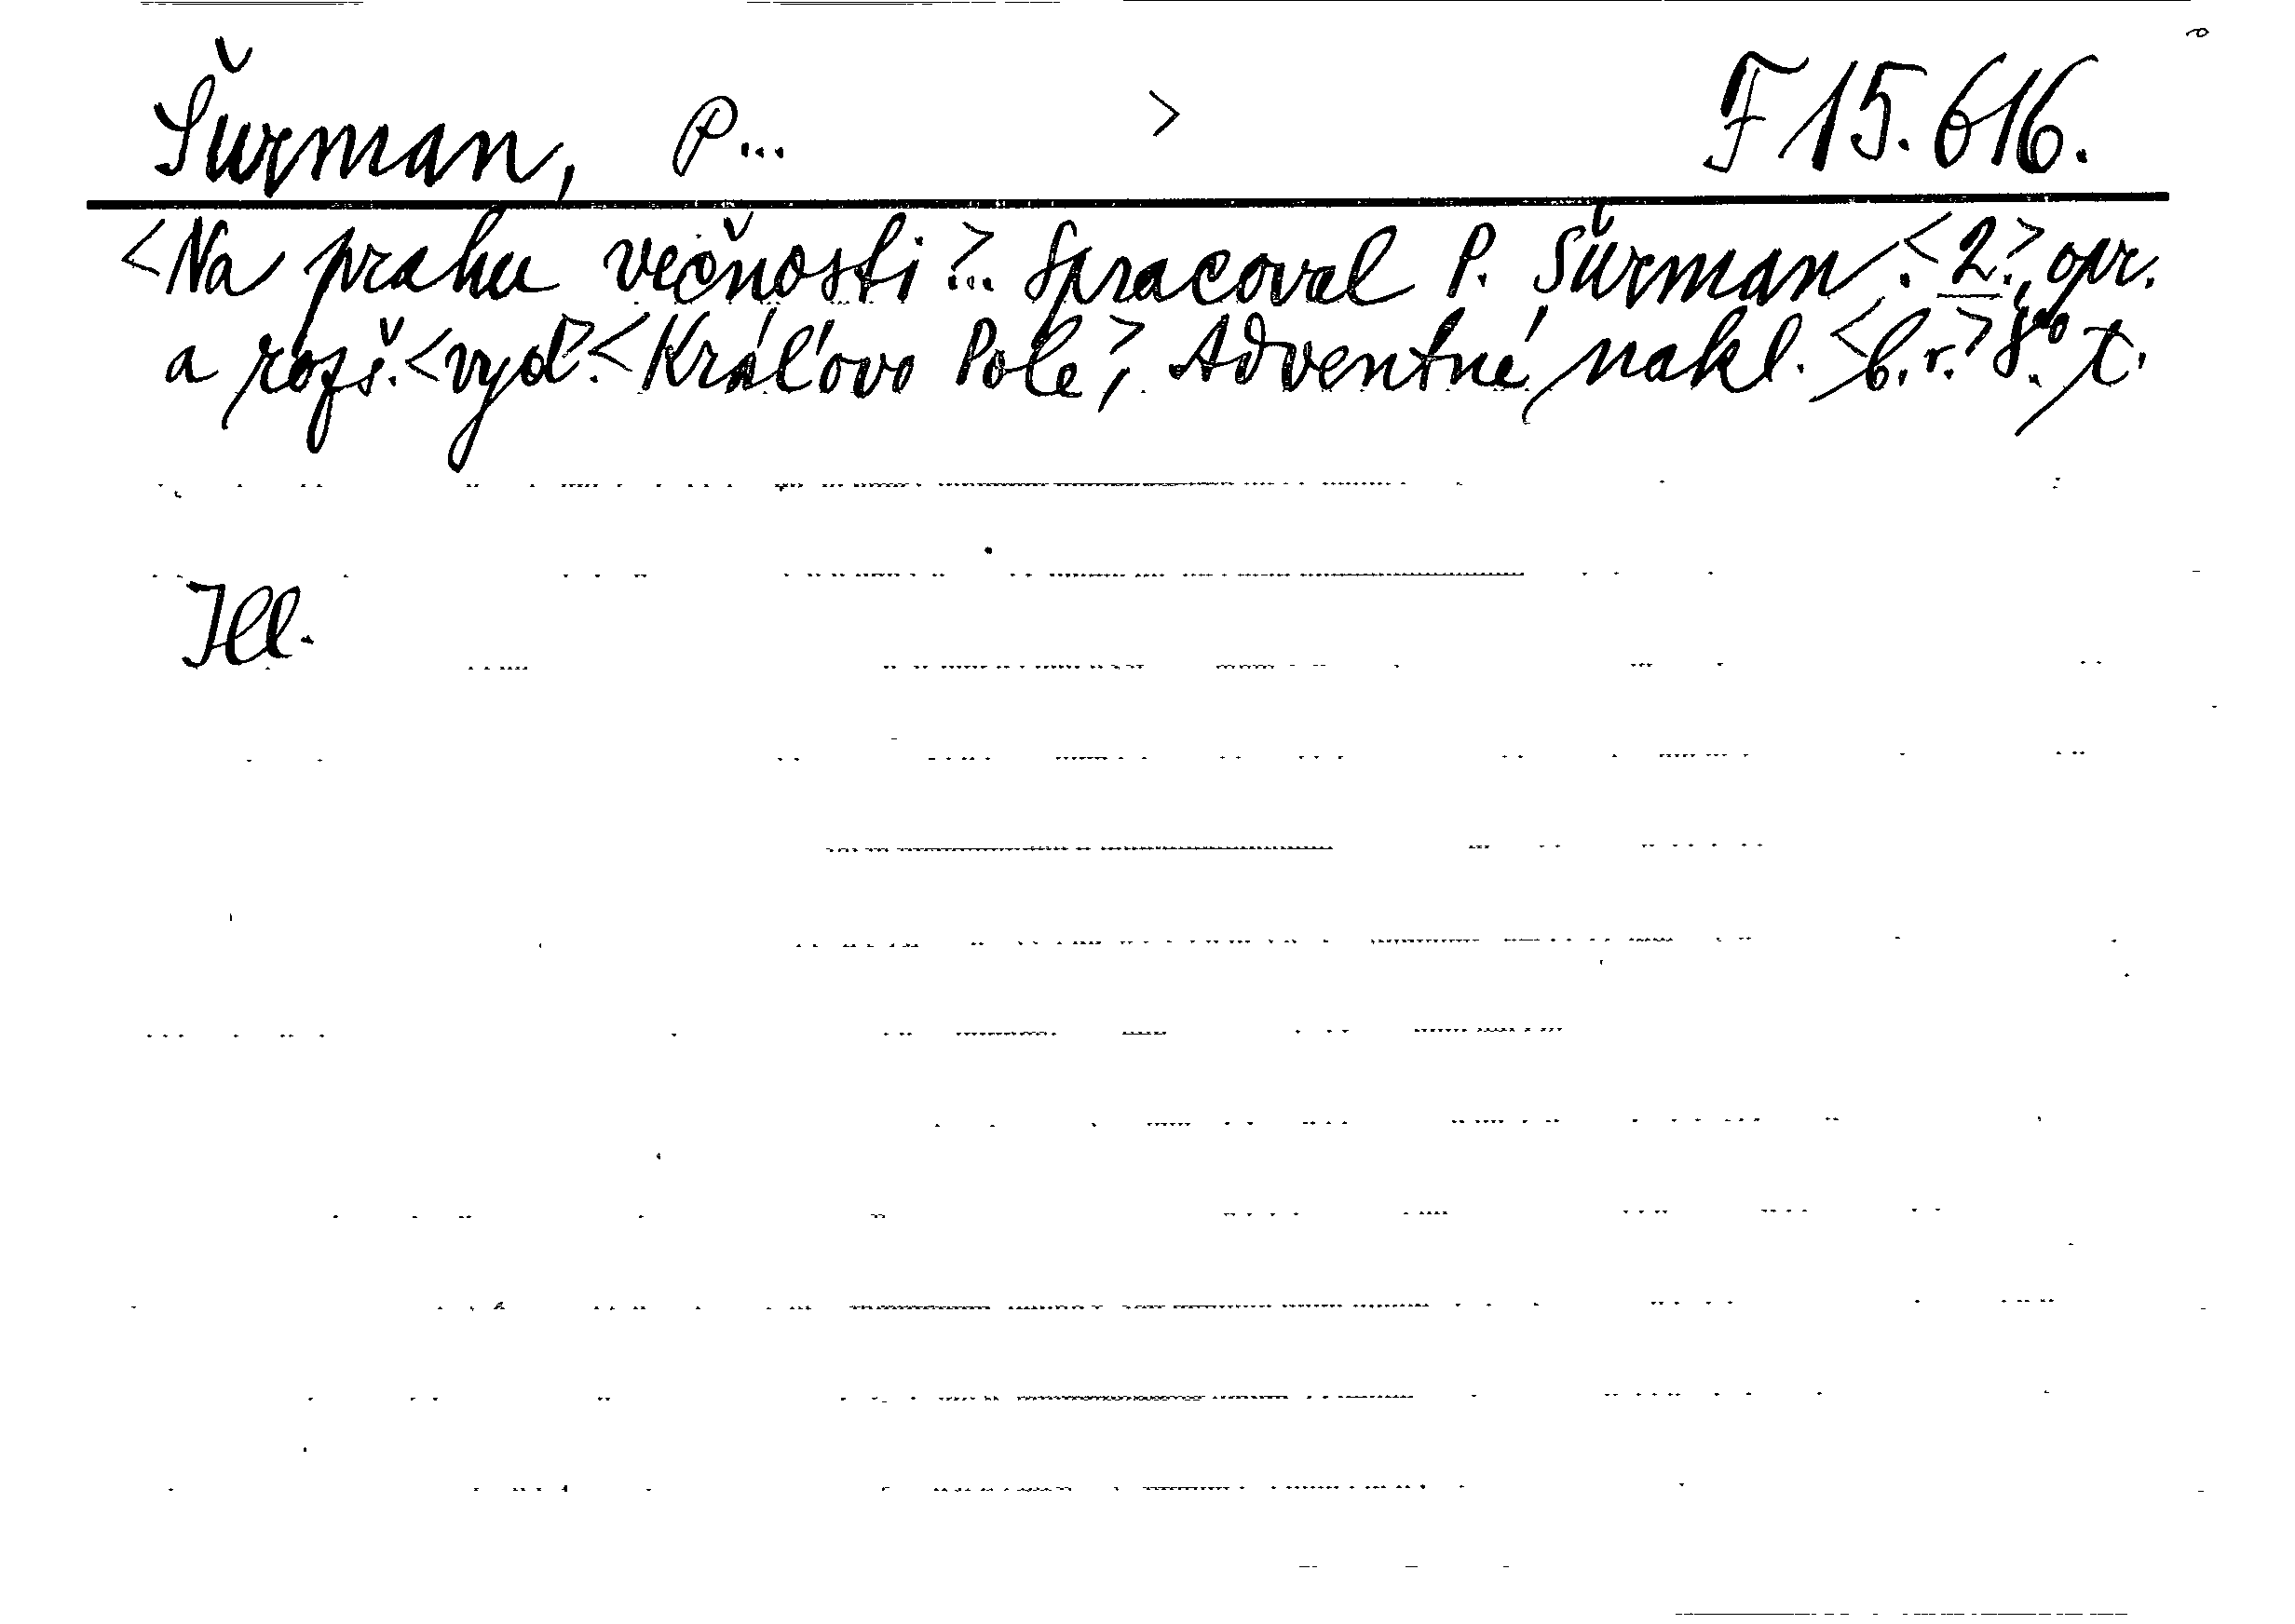 Šurman, P... > F 15.616.
<Na prahu večnosti>... Spracoval P. Šurman. <2.>, opr.
a rozš. <vyd>. <Kráľovo Pole>, Adventné nakl. <b. r.> 8°. t.
Ill.